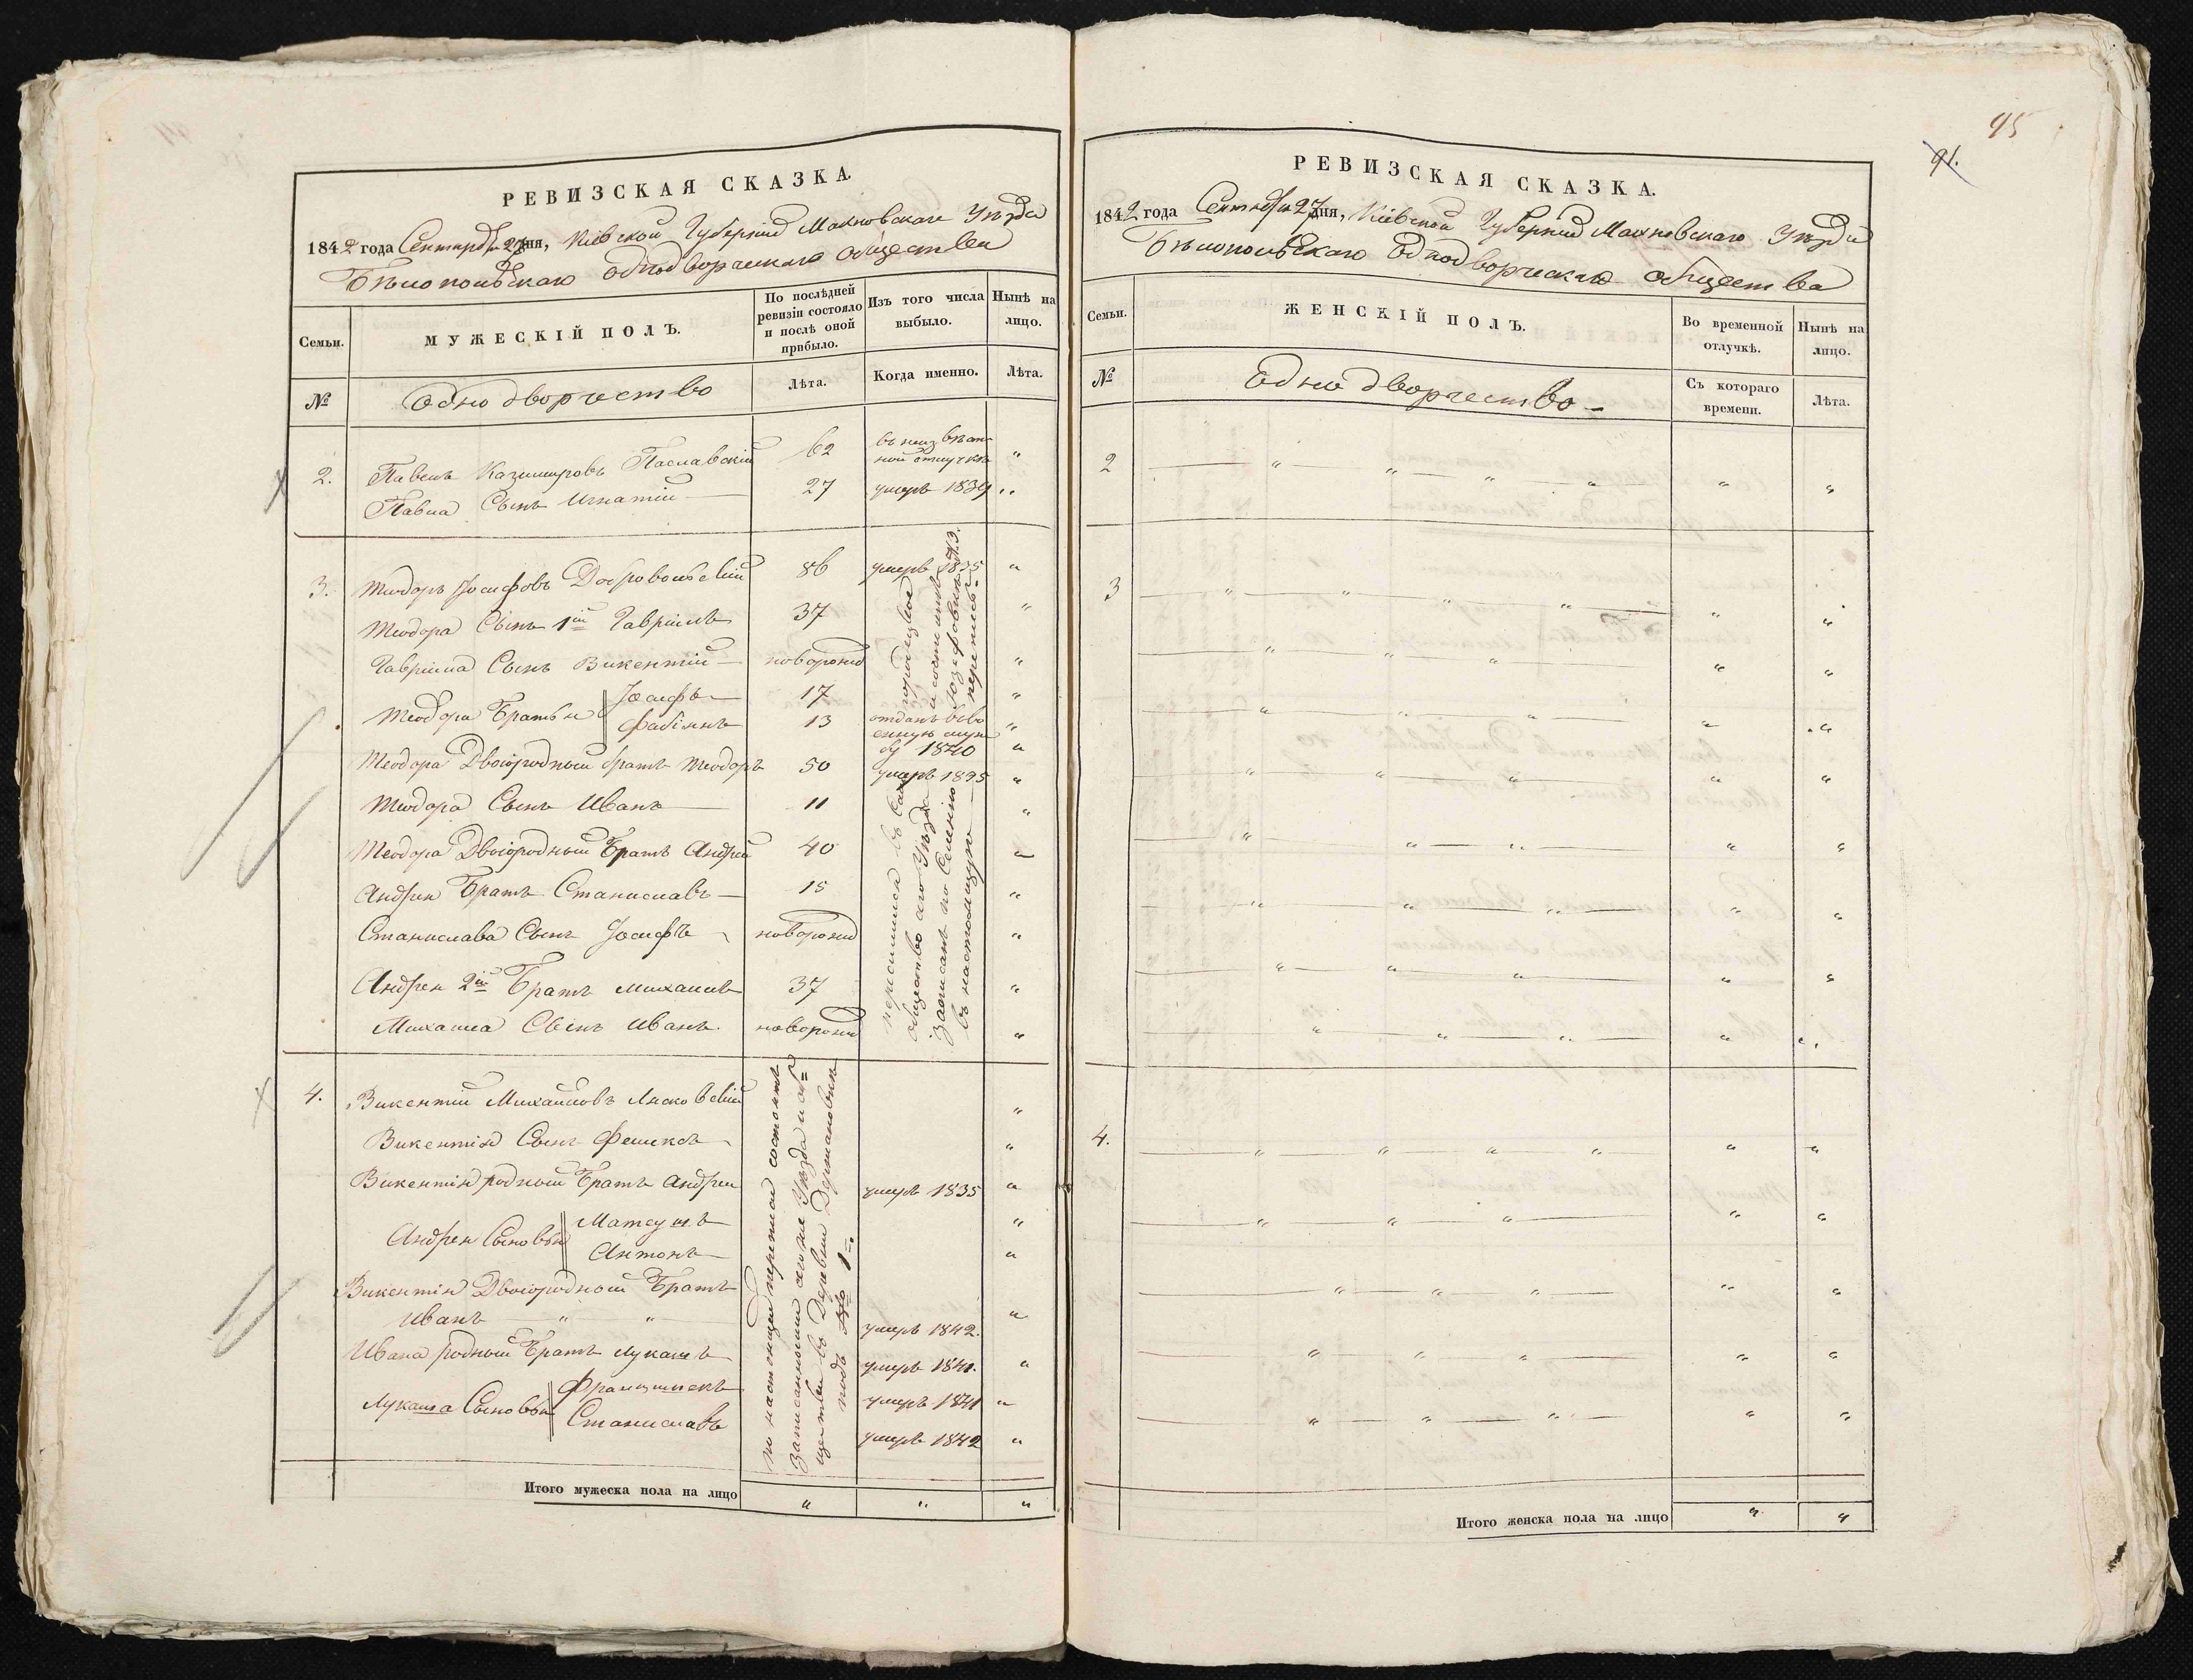 РЕВИЗСКАЯ СКАЗКА.
1842 года Сентября 27 дня, Кіевской Губерніи Махновскаго Уѣзда
Бѣлопольскаго однодворческаго общества
Семьи.
МУЖЕСКІЙ ПОЛЪ.
По послѣдней ревизіи состояло и послѣ оной прибыло.
Изъ того числа выбыло.
Нынѣ на лицо.
№
Однодворчество
Лѣта.
Когда именно.
Лѣта.
2. Павелъ Казимировъ Паславскій 62 въ неизвѣст-
ной отлучкѣ "
Павла Сынъ Игнатій 27 умеръ 1839 "
3. Теодоръ Іосифовъ Добровольскій 86 умеръ 1835 "
Теодора Сынъ 1й Гавріилъ 37 "
Гавріила Сынъ Викентій новорожд "
Теодора Братья Іосифъ 17 "
Фабіянъ 13 отданъ въ во
енную служ "
бу 1840
Теодора Двоюродный братъ Теодоръ 50 умеръ 1835 "
Теодора Сынъ Иванъ 11 "
Теодора Двоюродный Братъ Андрей 40 "
Андрея Братъ Станиславъ 15 "
Станислава Сынъ Іосифъ новорожд "
Андрея 2й Братъ Михаилъ 37 "
Михаила Сынъ Иванъ новорожд "
общество
Уѣзда
записанъ по
въ настоящую
перепись
4. Викентій Михайловъ Лясковскій "
Викентія Сынъ Феликсъ "
Викентія родный Братъ Андрей умеръ 1835 "
Андрея Сыновья Матеушъ "
Антонъ "
Викентія Двоюродный Братъ
Иванъ " " умеръ 1842. "
Ивана родный Братъ Лукашъ умеръ 1841. "
Лукаша Сыновья Францишекъ умеръ 1841 "
Станиславъ умеръ 1842 "
по настоящей переписи состоятъ
записанными Уѣзда и об=
ществѣ въ Деревни
подъ № 1.
Итого мужеска пола на лицо " " "
95
91.
РЕВИЗСКАЯ СКАЗКА.
1842 года Сентября 27 дня, Кіевской Губерніи Махновскаго Уѣзда
Бѣлопольскаго Однодворческаго общества
Семьи.
ЖЕНСКІЙ ПОЛЪ.
Во временной отлучкѣ.
Нынѣ на лицо.
№
Однодворчество
Съ котораго времени.
Лѣта.
2
3
4.
Итого женска пола на лицо " "